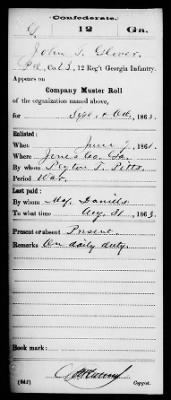 Confederate.
G 12 Ga.
John S. Glover
Pvt, Co. G, 12 Reg't Georgia Infantry.
Appears on
Company Muster Roll
of the organization named above,
for Sept. & Oct., 1863.
Enlisted:
When June 7, 1861.
Where Jones Co. Ga.
By whom Peyton T. Pitts
Period War
Last paid:
By whom Maj. Daniels
To what time Aug. 31, 1863.
Present or absent Present
Remarks On daily duty.
Book mark:
(642) Copyist.